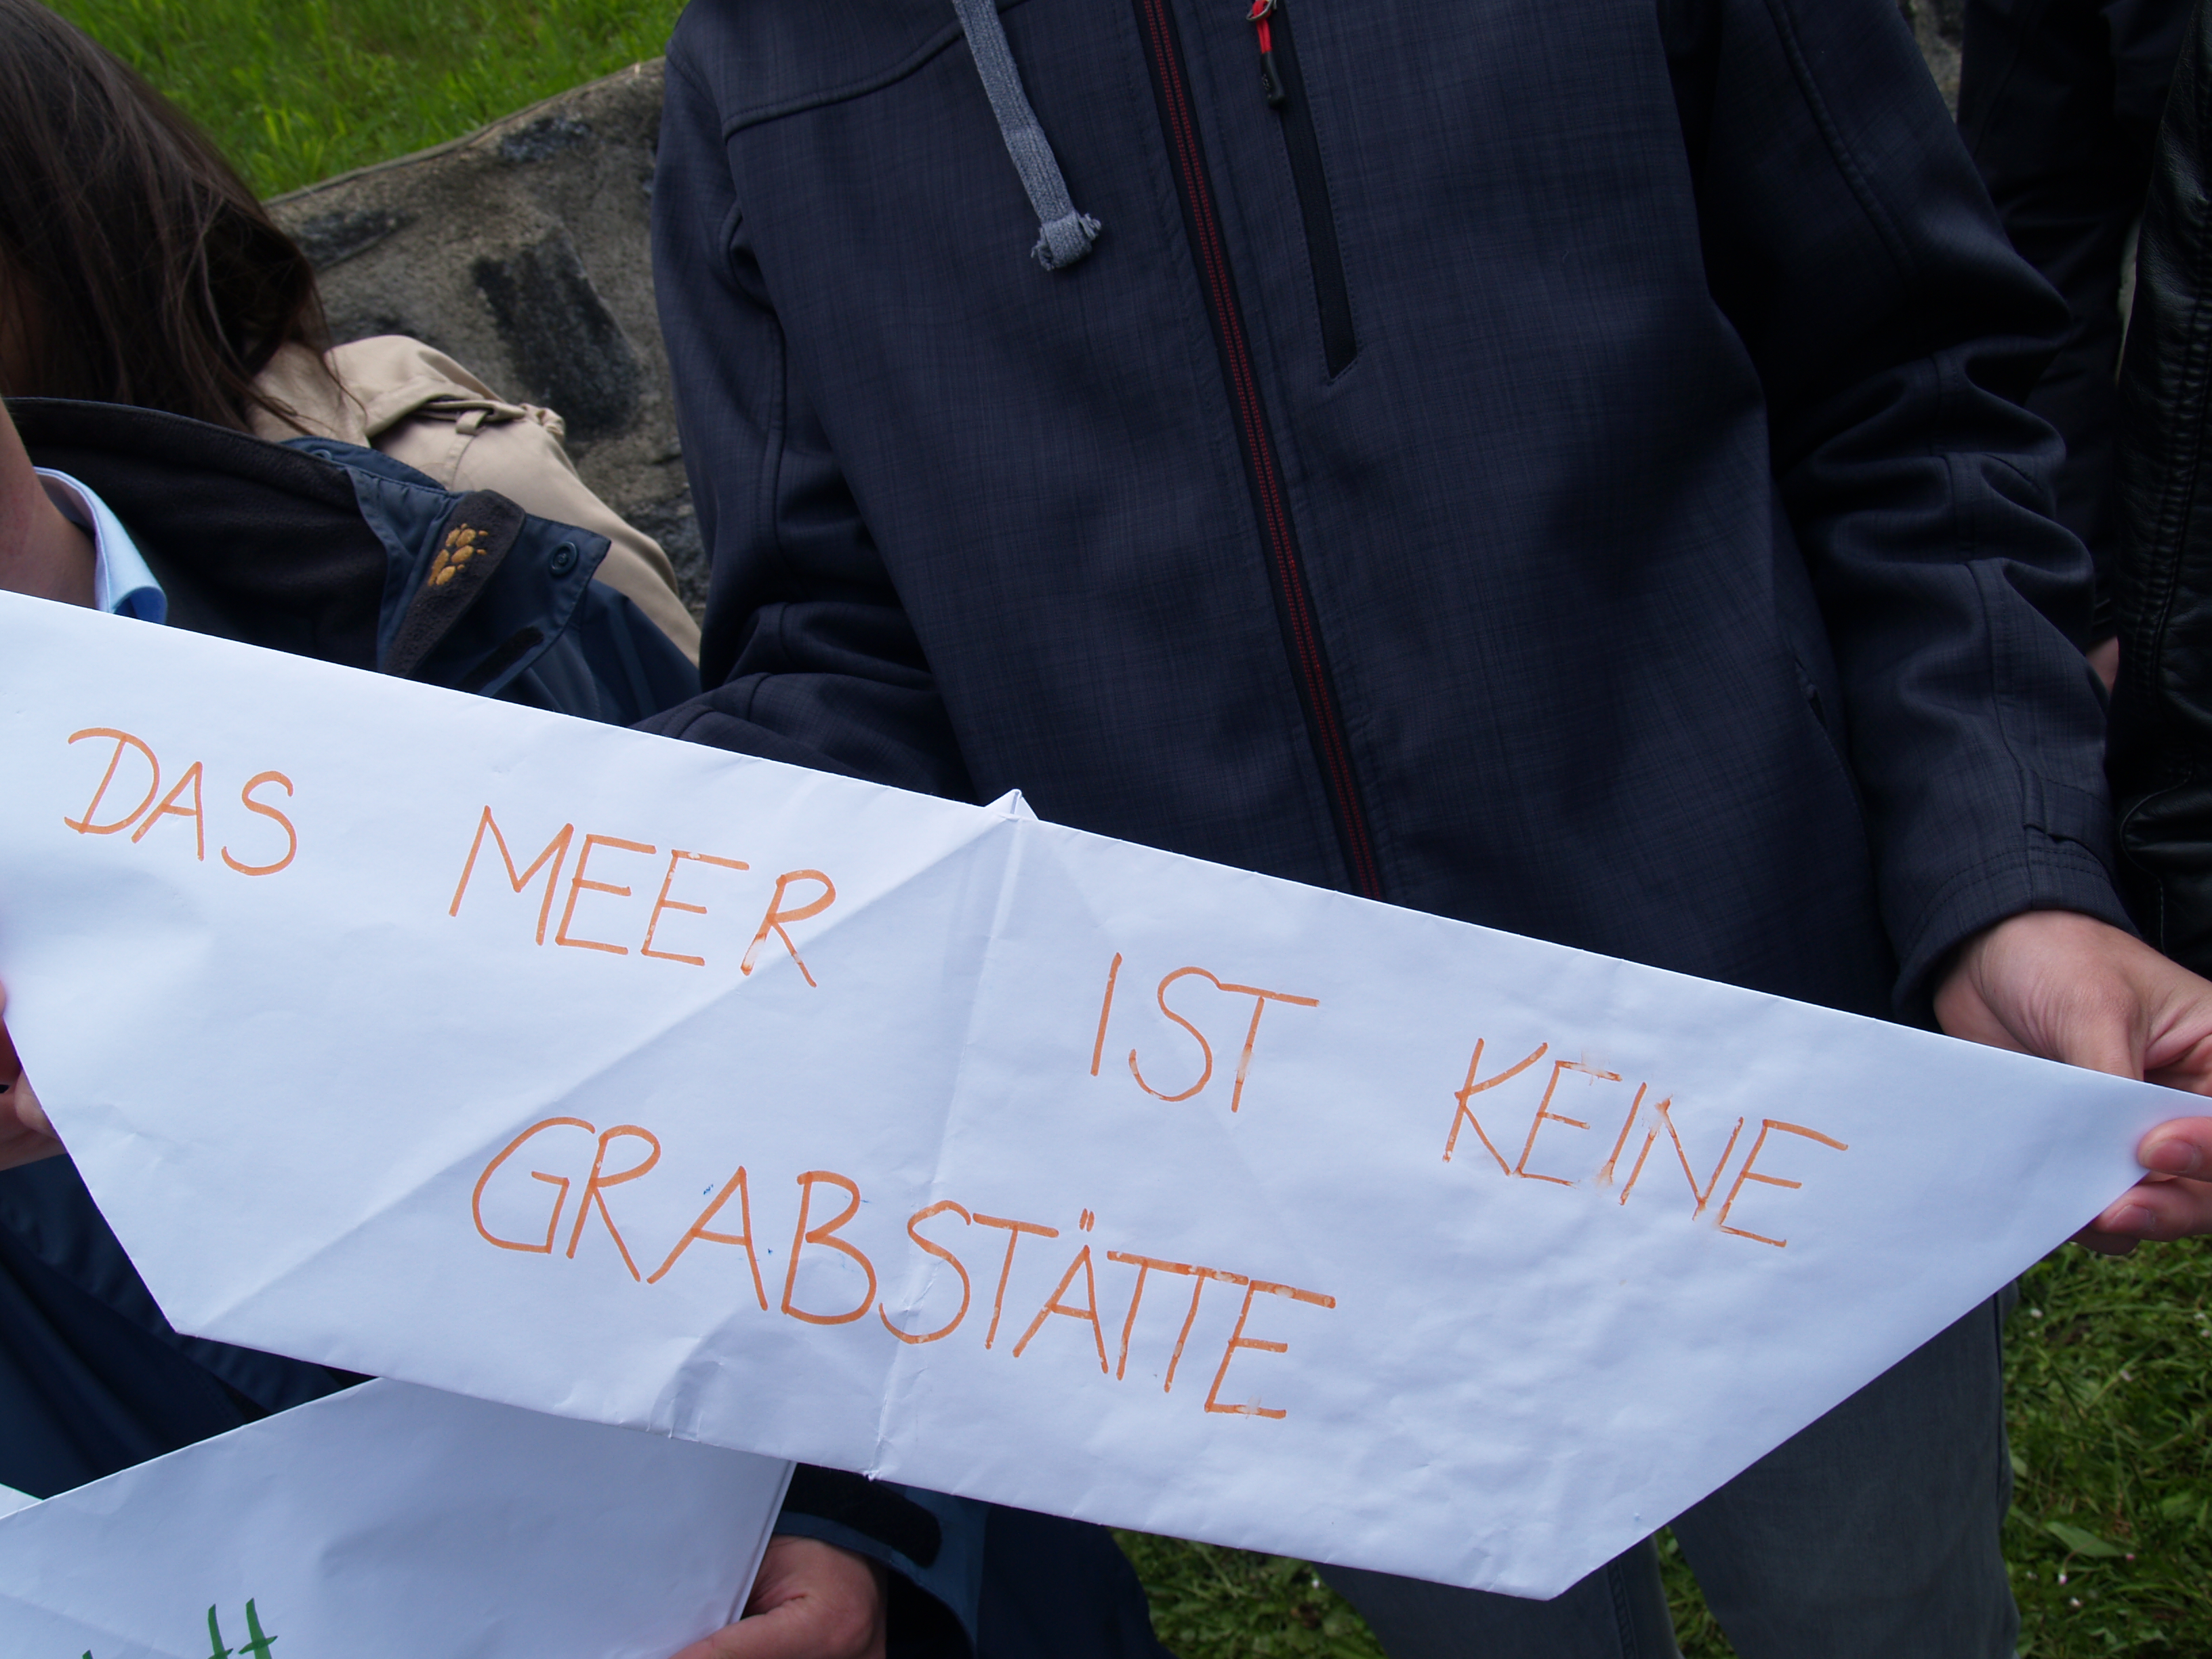 DAS MEER IST KEINE
GRABSTÄTTE